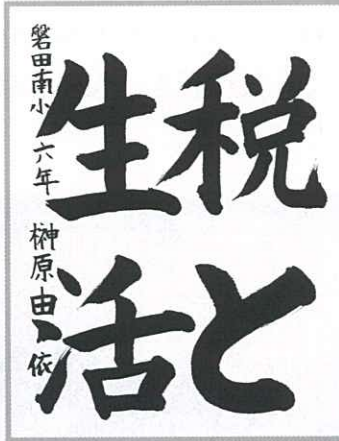 税と
生活
磐田南小 六年 榊原由依